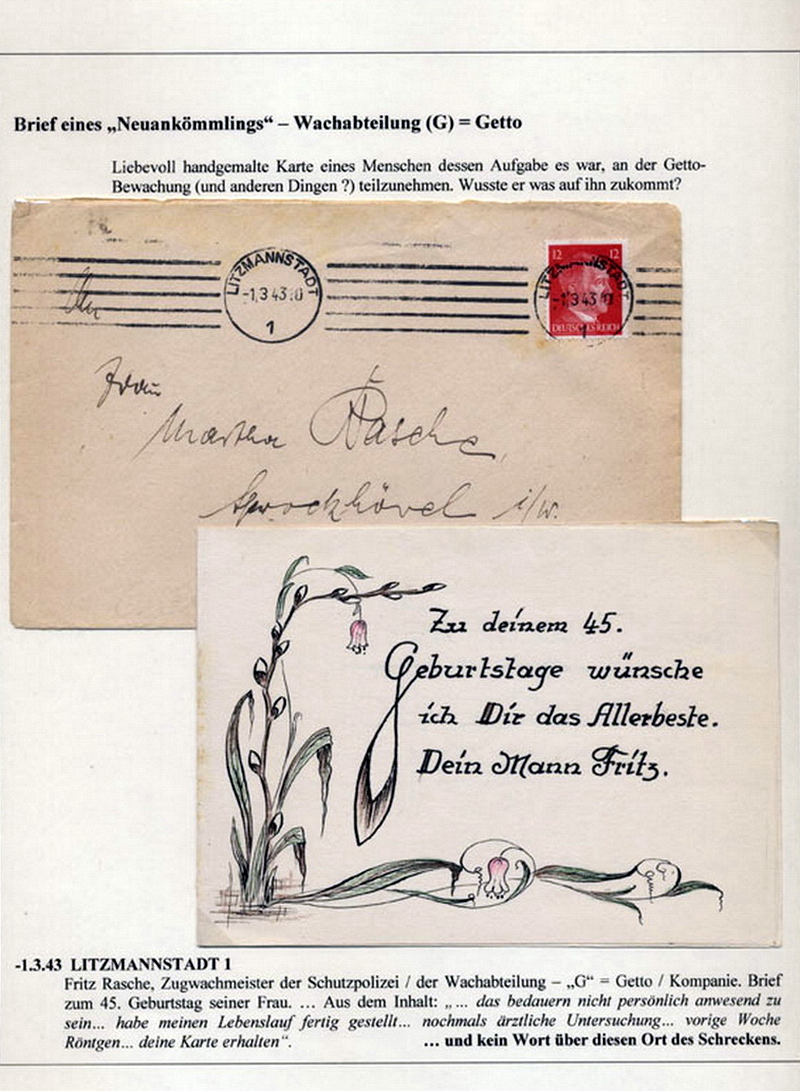 Brief eines „Neuankömmlings“ – Wachabteilung (G) = Getto
Liebevoll handgemalte Karte eines Menschen dessen Aufgabe es war, an der Getto-
Bewachung (und anderen Dingen ?) teilzunehmen. Wusste er was auf ihn zukommt?
LITZMANNSTADT
-1.3.43
1
12 12
LITZMANNSTADT
-1.3.43
DEUTSCHES REICH
1
An
Frau
Martha Rasche,
Sprockhövel i/W.
Zu deinem 45.
Geburtstage wünsche
ich Dir das Allerbeste.
Dein Mann Fritz.
-1.3.43 LITZMANNSTADT 1
Fritz Rasche, Zugwachmeister der Schutzpolizei / der Wachabteilung – „G“ = Getto / Kompanie. Brief
zum 45. Geburtstag seiner Frau. … Aus dem Inhalt: „… das bedauern nicht persönlich anwesend zu
sein... habe meinen Lebenslauf fertig gestellt... nochmals ärztliche Untersuchung... vorige Woche
Röntgen... deine Karte erhalten“. … und kein Wort über diesen Ort des Schreckens.